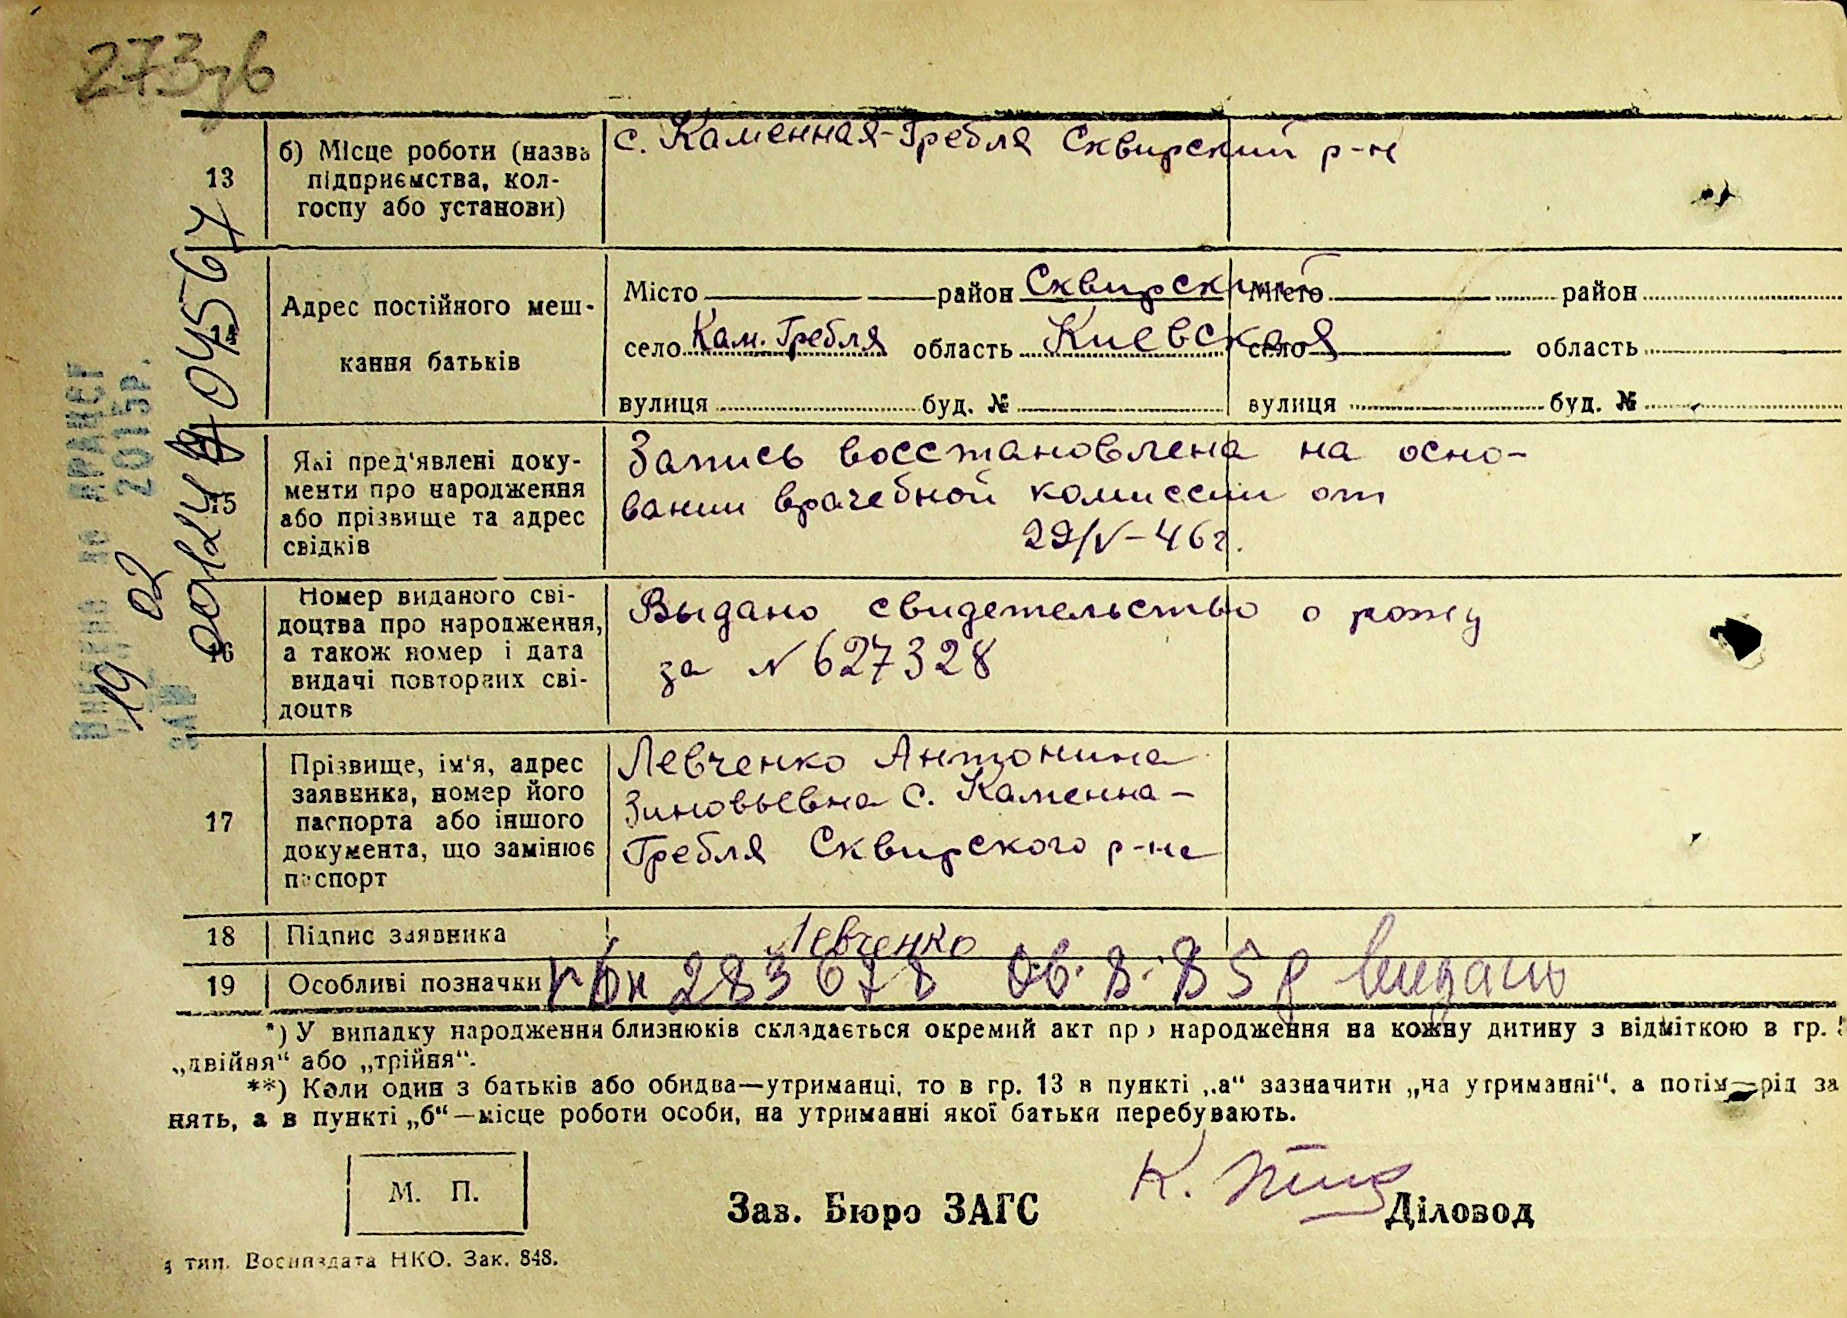 273зв
13
б) Місце роботи (назва
підприємства, кол-
госпу або установи)
с. Каменная-Гребля Сквирский р-н
14
Адрес постійного меш-
кання батьків
Місто район Сквирский
село Кам. Гребля область Киевская
вулиця буд. №
Місто район
село область
вулиця буд. №
15
Які пред'явлені доку-
менти про народження
або прізвище та адрес
свідків
Запись восстановлена на осно-
вании врачебной комиссии от
29/V-46г.
16
Номер виданого сві-
доцтва про народження,
а також номер і дата
видачі повторних сві-
доцтв
Выдано свидетельство о рожд
за N 627328
17
Прізвище, ім'я, адрес
заявника, номер його
паспорта або іншого
документа, що замінює
паспорт
Левченко Антонина
Зиновьевна с. Каменна-
Гребля Сквирского р-на
18
Підпис заявника
Левченко
19
Особливі позначки
283678 06.8.85р видано
*) У випадку народження близнюків складається окремий акт про народження на кожну дитину з відміткою в гр.
„двійня“ або „трійня“.
**) Коли один з батьків або обидва—утриманці, то в гр. 13 в пункті „а“ зазначити „на утриманні“, а потім—рід за
нять, а в пункті „б“—місце роботи особи, на утриманні якої батьки перебувають.
М. П.
Зав. Бюро ЗАГС
Діловод
тип. Воениздата НКО. Зак. 848.
2015р.
19 02